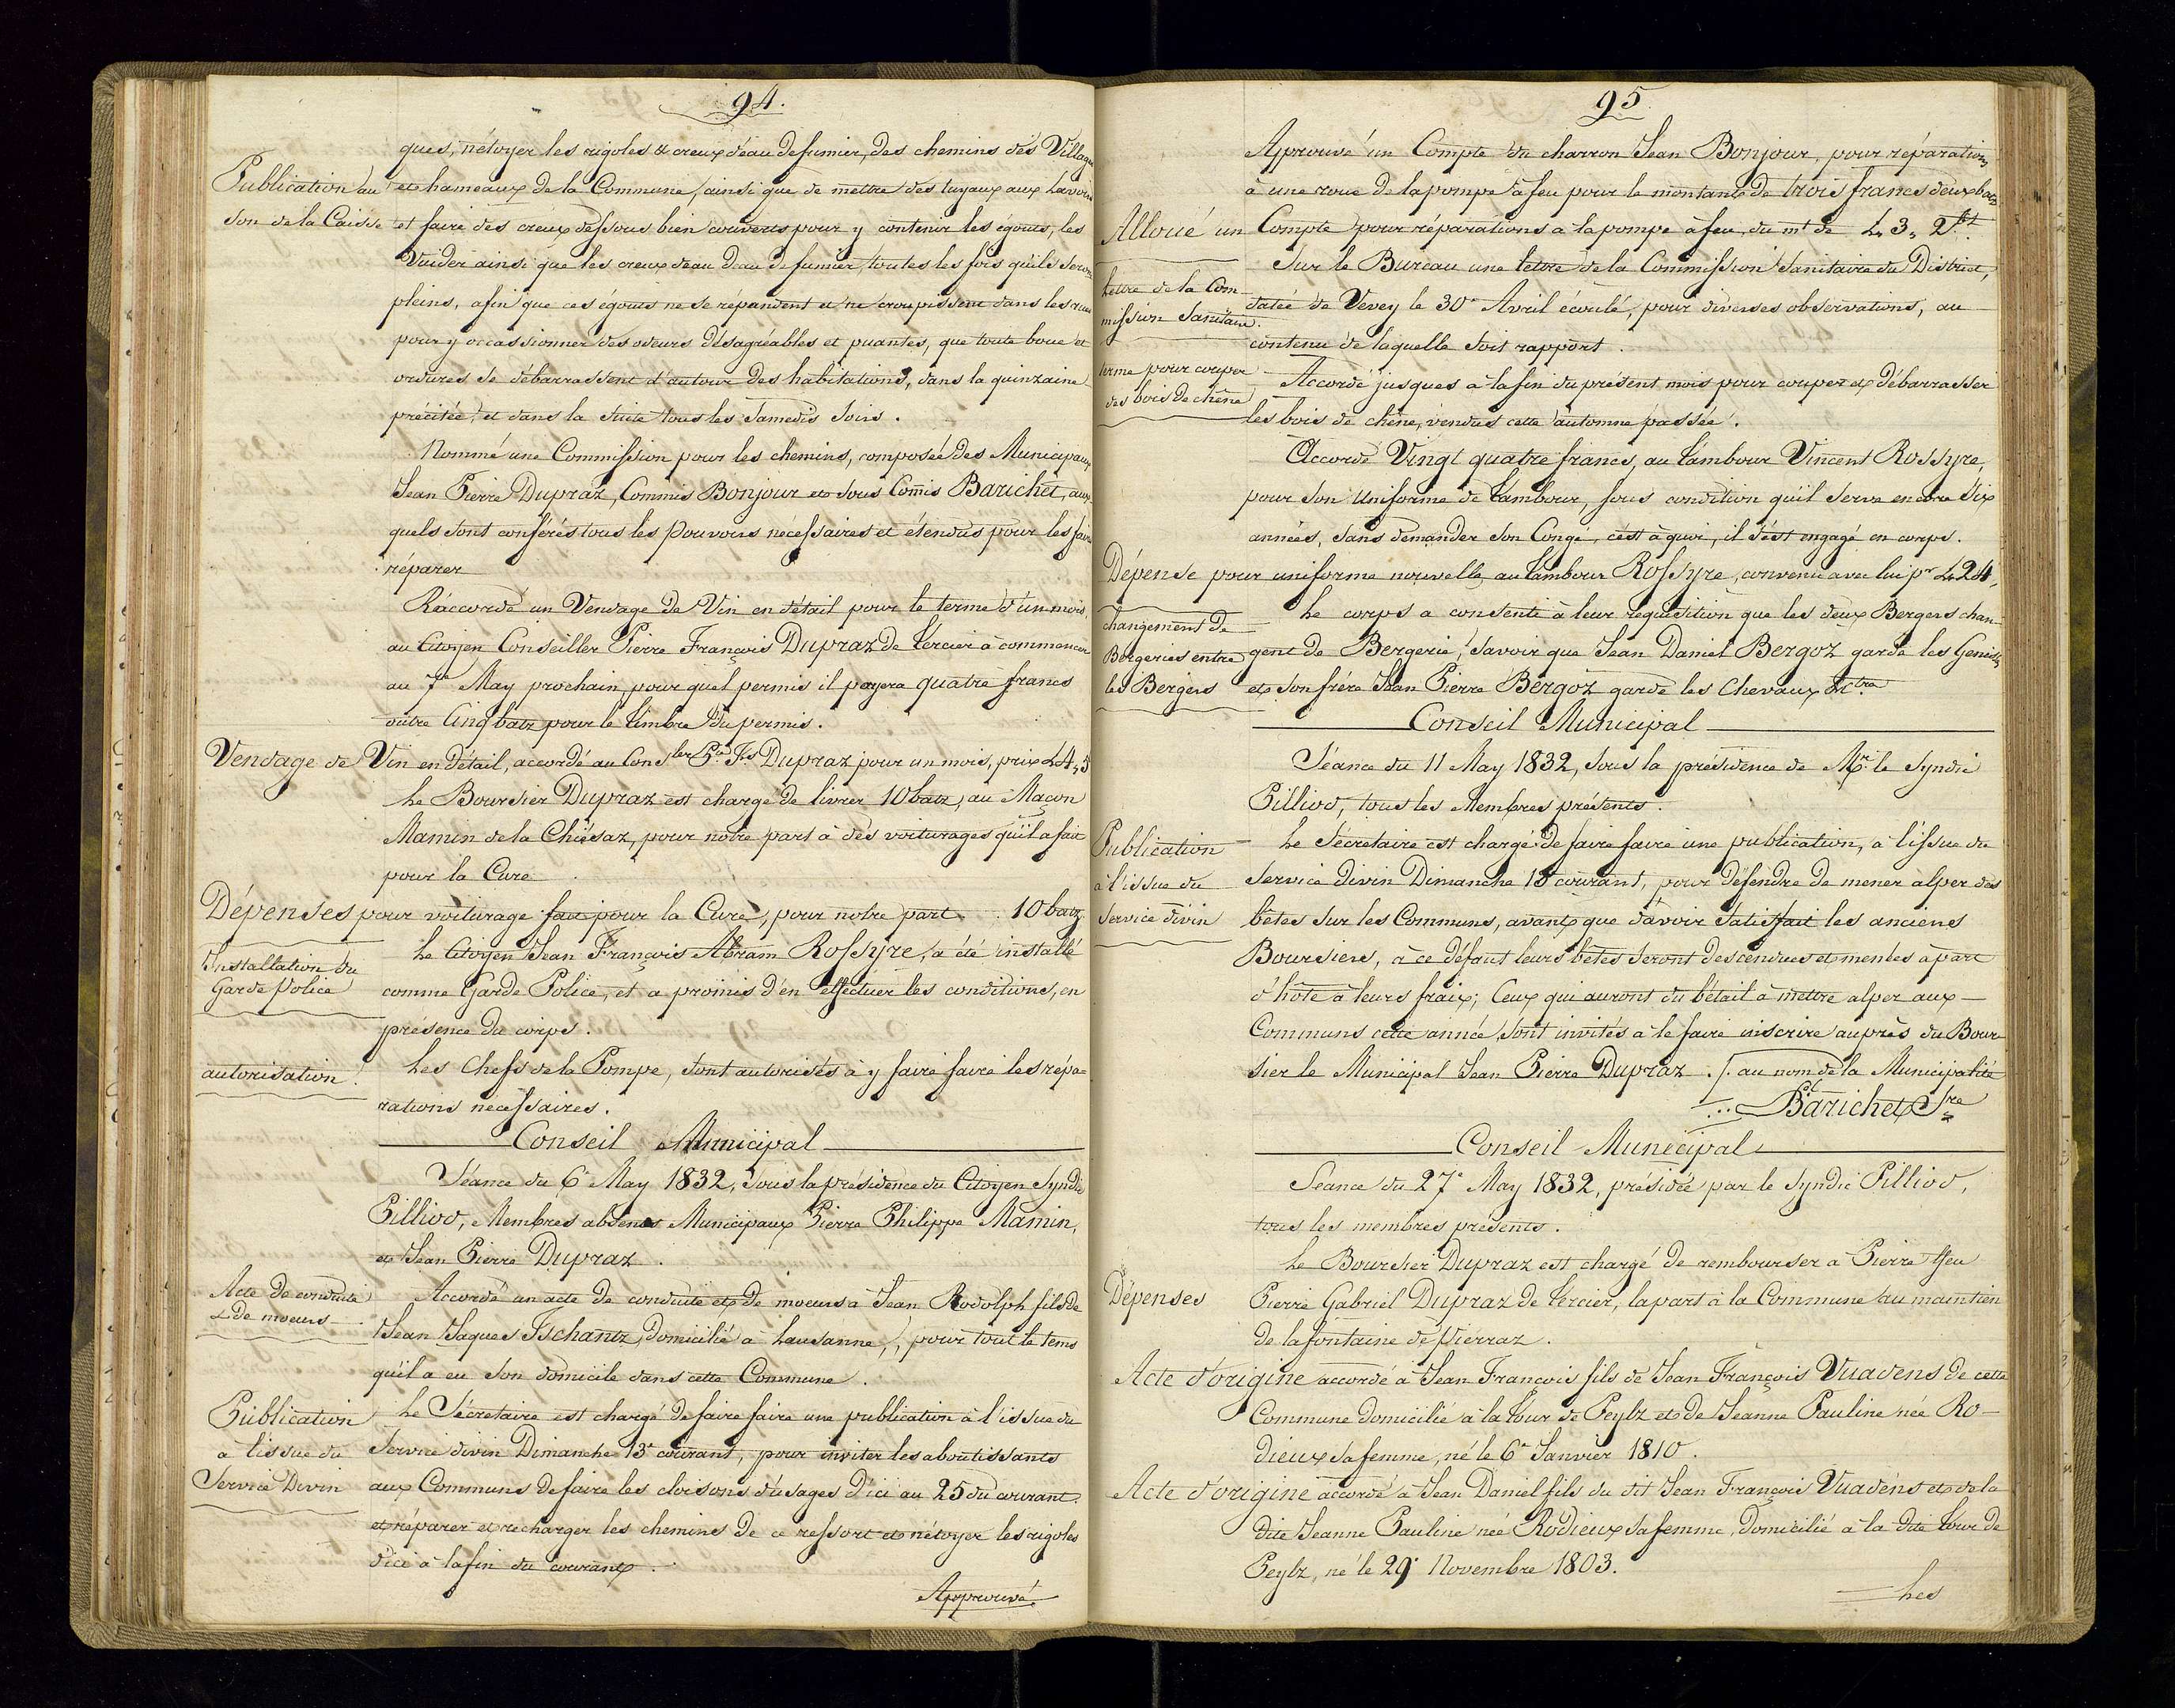 94.
ques, nétoyer les rigoles & creux d'eau de fumier, des chemins des Villages
Publication au
et hameaux de la Commune, ainsi que de mettre des tuyaux aux Lavoirs
son de la Caisse
et faire des creux dessous bien couverts pour y contenir les égouts, les
Vuider ainsi que les creux d'eau d'eau de fumier, toutes les fois qu'ils seront
pleins, afin que ces égouts ne se répandent et ne croupissent dans les rues
pour y occassionner des odeurs désagréables et puantes, que toute boue et
ordures se débarrassent d'autour des habitations, dans la quinzaine
précitée, et dans la suite tous les Samedis soirs.
Nommé une Commission pour les chemins, composée des Municipaux
Jean Pierre Dupraz, Commis Bonjour et sous Comis Barichet, aux
quels sont conférés tous les pouvoirs nécessaires et étendus pour les faire
réparer
Raccordé un Vendage de Vin en détail pour le terme d'un mois,
au Citoyen Conseiller Pierre François Dupraz de tercier à commencer
au 7e May prochain, pour quel permis il payera quatre francs
outre Cinq batz pour le timbre du permis.
Vendage de Vin en détail, accordé au Consler Pre Fs Dupraz pour un mois, prix L 4, 5
Le Boursier Dupraz est chargé de livrer 10 batz, au Maçon
Mamin de la Chiésaz, pour notre part à des voiturages qu'il a fait
pour la Cure.
Dépenses pour voiturage fait pour la Cure, pour notre part . . 10 batz
Installation du
Garde Police
Le Citoyen Jean François Abram Rossyre, a été installé
comme Garde Police, et a promis d'en effectuer les conditions, en
présence du corps.
autorisation.
Les Chefs de la Pompe, sont autorisés à y faire faire les répa=
rations necessaires.
Conseil Municipal
Séance du 6e May 1832, sous la présidence du Citoyen Syndic
Pilliod, Membres absents Municipaux Pierre Philippe Mamin,
et Jean Pierre Dupraz.
Acte de conduite
& de moeurs
Accordé un acte de conduite et de moeurs à Jean Rodolph fils de
Jean Jaques Tschantz, domicilié à Lausanne, pour tout le tems
qu'il a eu son domicile dans cette Commune.
Publication
à l'issue du
Service Divin
Le Sécretaire est chargé de faire faire une publication à l'issue du
Service divin Dimanche 13e courant, pour inviter les aboutissants
aux Communs de faire les cloisons d'usages d'ici au 25 du courant
et réparer et recharger les chemins de ce ressort et nétoyer les rigoles
d'ici à la fin du courant.
Approuvé
95
Approuvé un Compte du charron Jean Bonjour, pour réparations
à une roue de la pompe à feu pour le montant de trois francs deux batz
Alloué un Compte pour réparations à la pompe à feu, du mt de L 3, 2 bt
Lettre de la Com
mission Sanitaire.
Sur le Bureau une lettre de la Commission Sanitaire du District,
datée de Vevey le 30e Avril écoulé, pour diverses observations, au
contenu de laquelle soit rapport.
terme pour couper
des bois de chêne
Accordé jusques à la fin du présent mois pour couper et débarrasser
les bois de chêne, vendus cette automne passée.
Accordé Vingt quatre francs, au tambour Vincent Rossyre,
pour son uniforme de tambour, sous condition qu'il serve encore six
années, sans demander son Congé, c'est à quoi, il s'est engagé en corps.
Dépense pour uniforme nouvelle au tambour Rossyre, convenu avec lui pr L 24,
changement de
Bergeries entre
les Bergers
Le corps a consenti à leur requisition que les deux Bergers chan-
gent de Bergerie, savoir que Jean Daniel Bergoz garde les Genisses
et son frère Jean Pierre Bergoz garde les Chevaux &ctra
Conseil Municipal
Séance du 11 May 1832, sous la présidence de Mr. le Syndic
Pilliod, tous les Membres présents.
Publication
à l'issue du
Service divin
Le Sécretaire est chargé de faire faire une publication, à l'issue du
Service divin Dimanche 13 courant, pour défendre de mener alper des
bêtes sur les Communs, avant que d'avoir satisfait les anciens
Boursiers, à ce défaut leurs bêtes seront descendues et menées à part
d'hôte à leurs fraix; Ceux qui auront du bétail à mettre alper aux
Communs cette année, sont invités à le faire inscrire auprès du Bour
sier le Municipal Jean Pierre Dupraz. /. au nom de la Municipalité
Barichet Sre
Conseil Municipal
Séance du 27e May 1832, présidée par le Syndic Pilliod,
tous les membres présents.
Dépenses
Le Boursier Dupraz est chargé de rembourser à Pierre ffeu
Pierre Gabriel Dupraz de tercier, la part à la Commune au maintien
de la fontaine de pierraz.
Acte d'origine accordé à Jean François fils de Jean François Vuadens de cette
Commune domicilié à la tour de Peylz et de Jeanne Pauline née Ro-
dieux sa femme, né le 6e Janvier 1810.
Acte d'origine accordé à Jean Daniel fils du dit Jean François Vuadens et de la
dite Jeanne Pauline née Rodieux sa femme, domicilié à la dite tour de
Peylz, né le 29e Novembre 1803.
Les